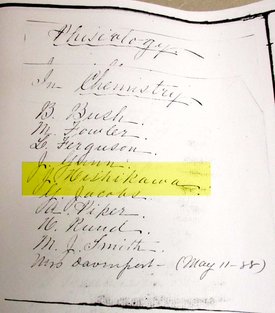 Phisiology
In Chemistry
B. Bush
M. Fowler.
L. Ferguson
J. Glenn
Hishikawa
Jacobs
Piper
H. Rund
M. J. Smith
Mrs Davenport - (May 11-88)